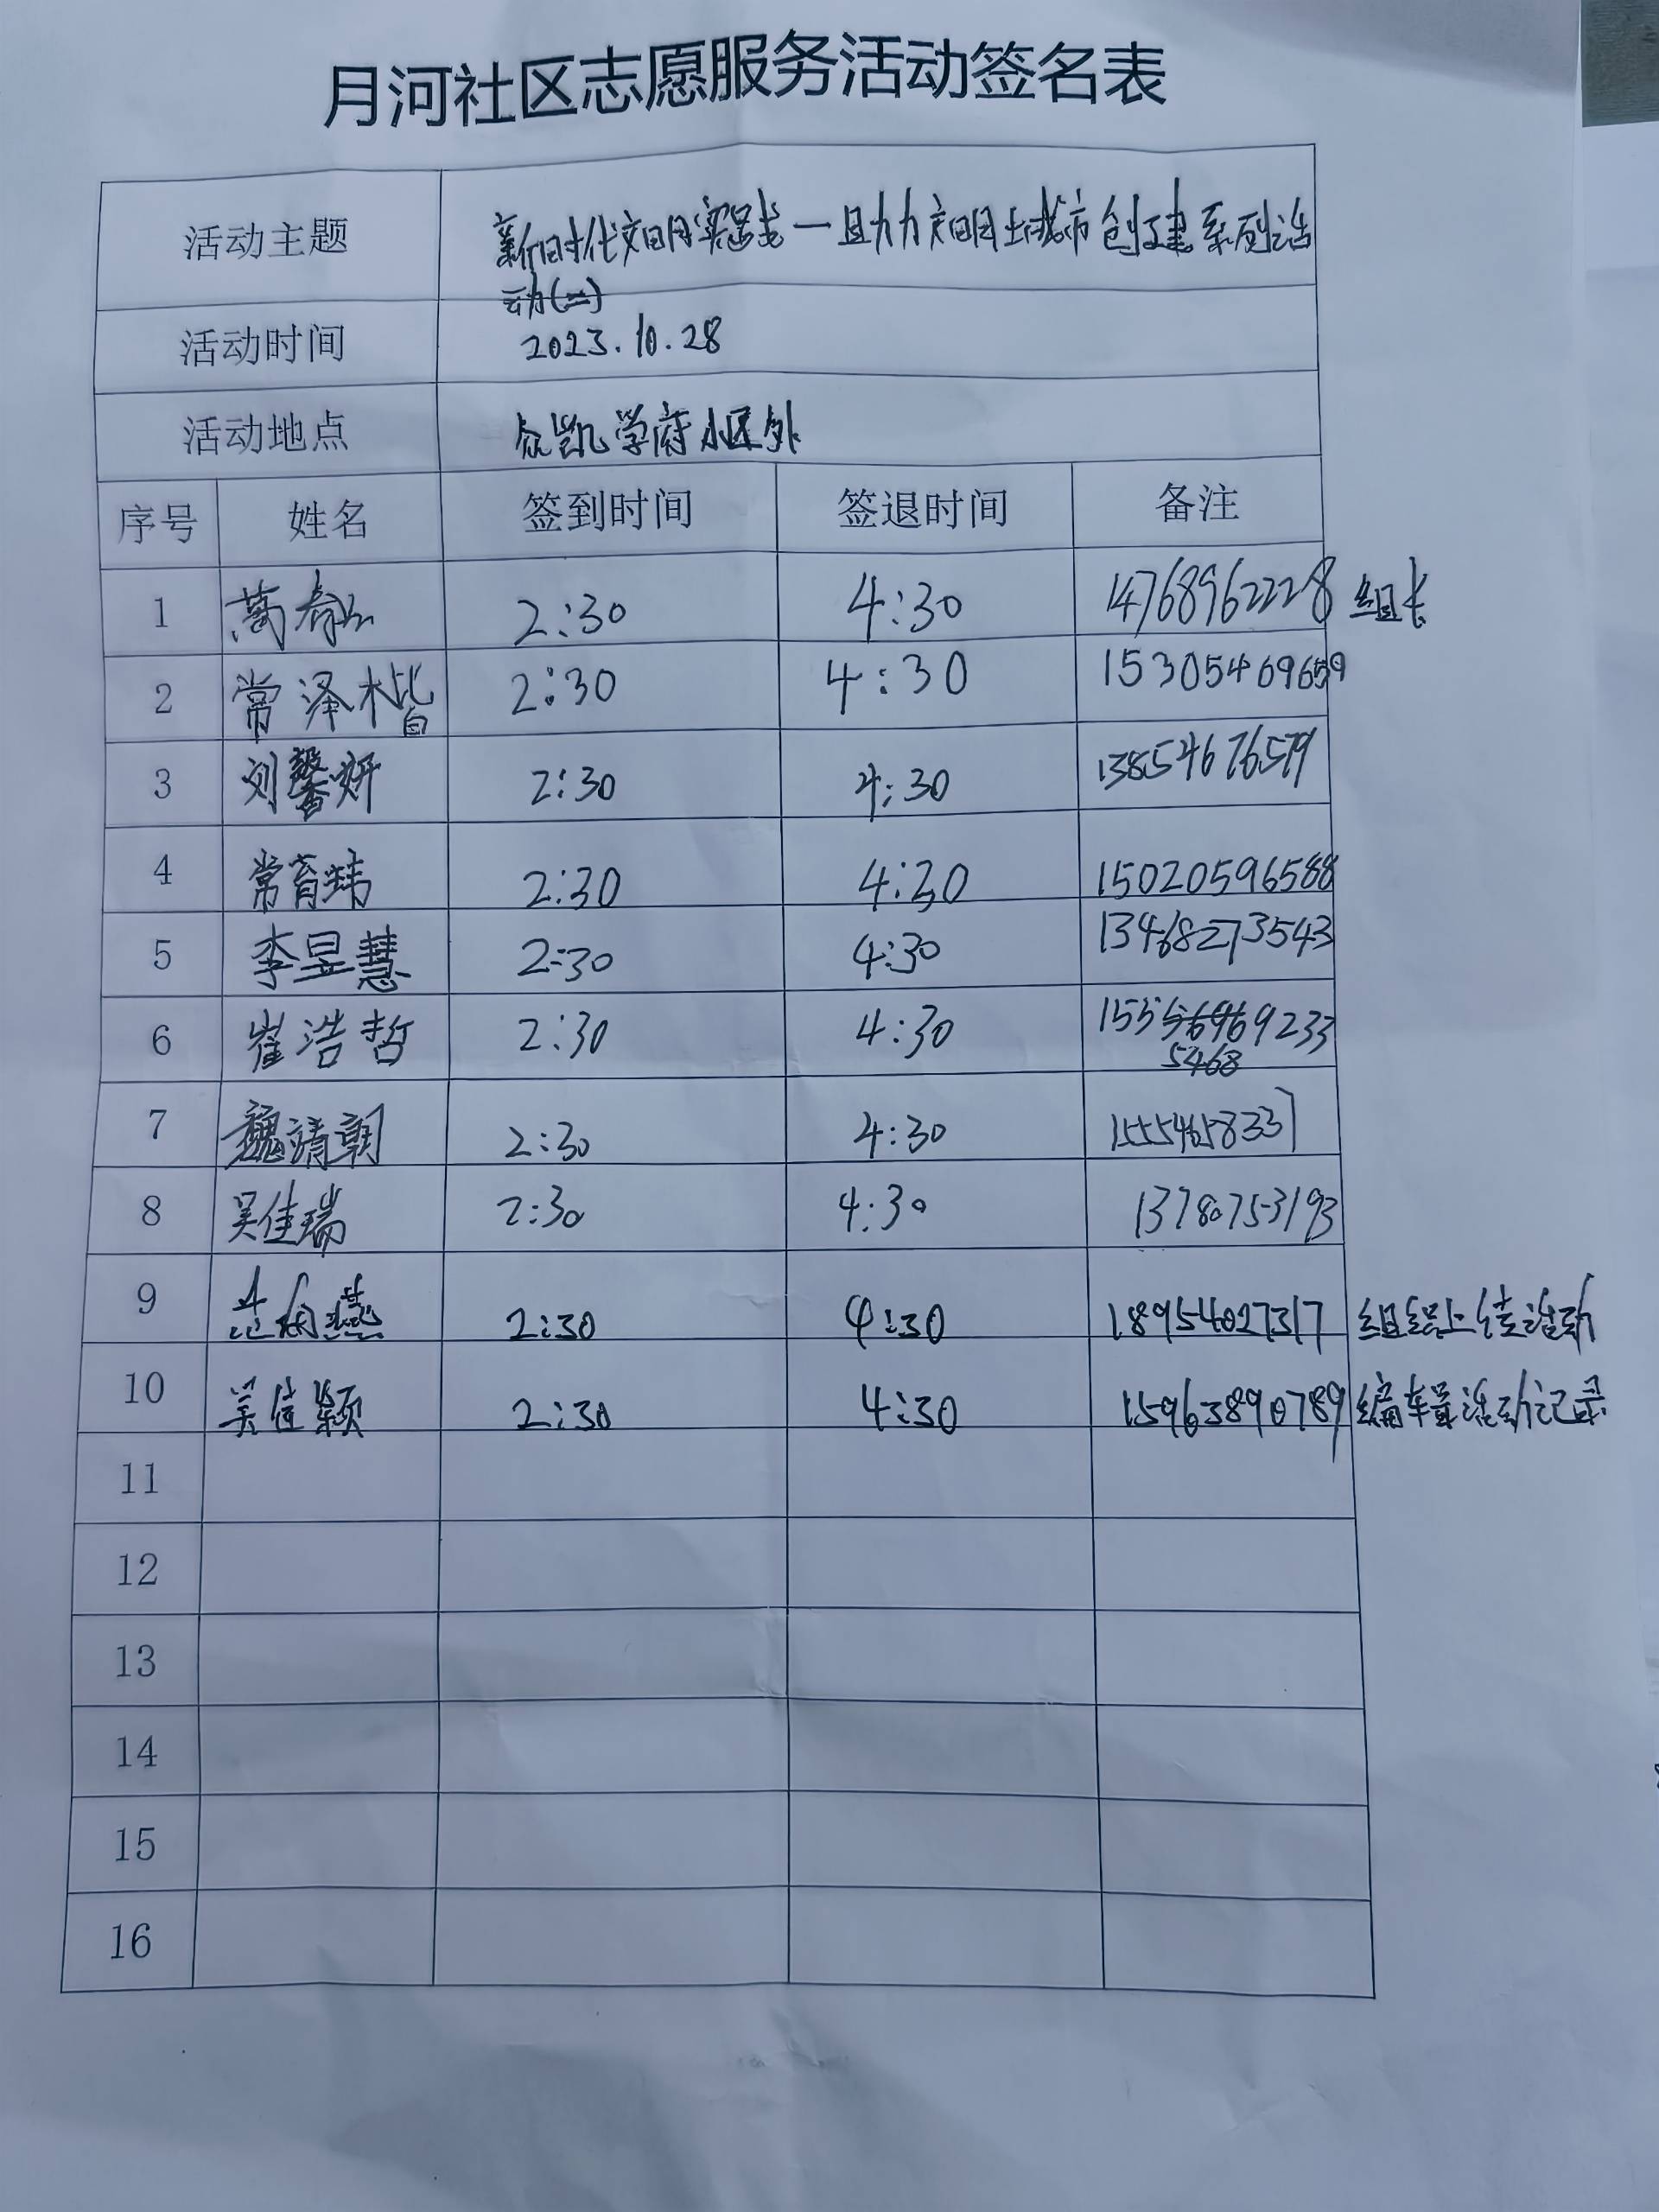 月河社区志愿服务活动签名表
活动主题 新时代文明实践—助力文明城市创建系列活
动(二)
活动时间 2023.10.28
活动地点 众凯学府小区外
序号 姓名 签到时间 签退时间 备注
1 2:30 4:30 14768962228 组长
2 常泽楷 2:30 4:30 15305469659
3 刘馨妍 2:30 4:30 13854676579
4 常育玮 2:30 4:30 15020596588
5 李昱慧 2:30 4:30 13468273543
6 崔浩哲 2:30 4:30 15554689233
7 魏靖朝 2:30 4:30 15554658337
8 吴佳瑞 2:30 4:30 13780753193
9 2:30 4:30 18954027317 组织上传活动
10 吴佳颖 2:30 4:30 15963890789 编辑活动记录
11
12
13
14
15
16